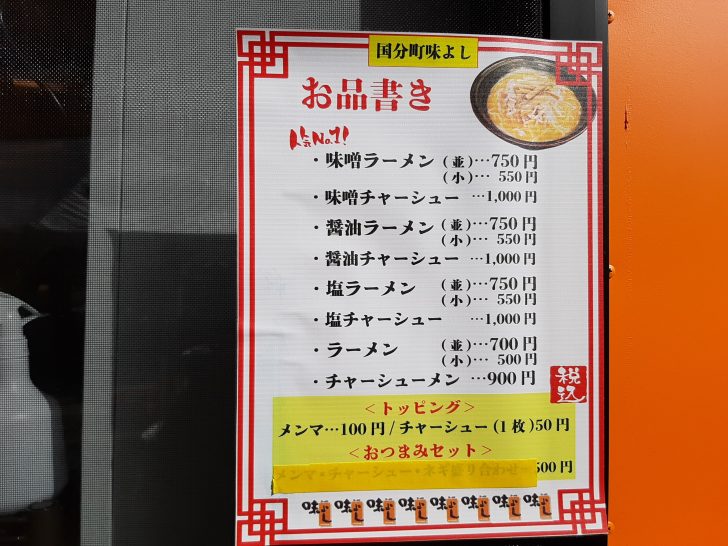 国分町味よし
お品書き
人気No.1!
・味噌ラーメン (並)…750円
(小)… 550円
・味噌チャーシュー …1,000円
・醤油ラーメン (並)…750円
(小)… 550円
・醤油チャーシュー …1,000円
・塩ラーメン (並)…750円
(小)… 550円
・塩チャーシュー …1,000円
・ラーメン (並)…700円
(小)… 500円
・チャーシューメン …900円
税込
<トッピング>
メンマ…100円/チャーシュー(1枚)50円
<おつまみセット>
メンマ・チャーシュー・ネギ盛り合わせ…500円
味よし 味よし 味よし 味よし 味よし 味よし 味よし 味よし